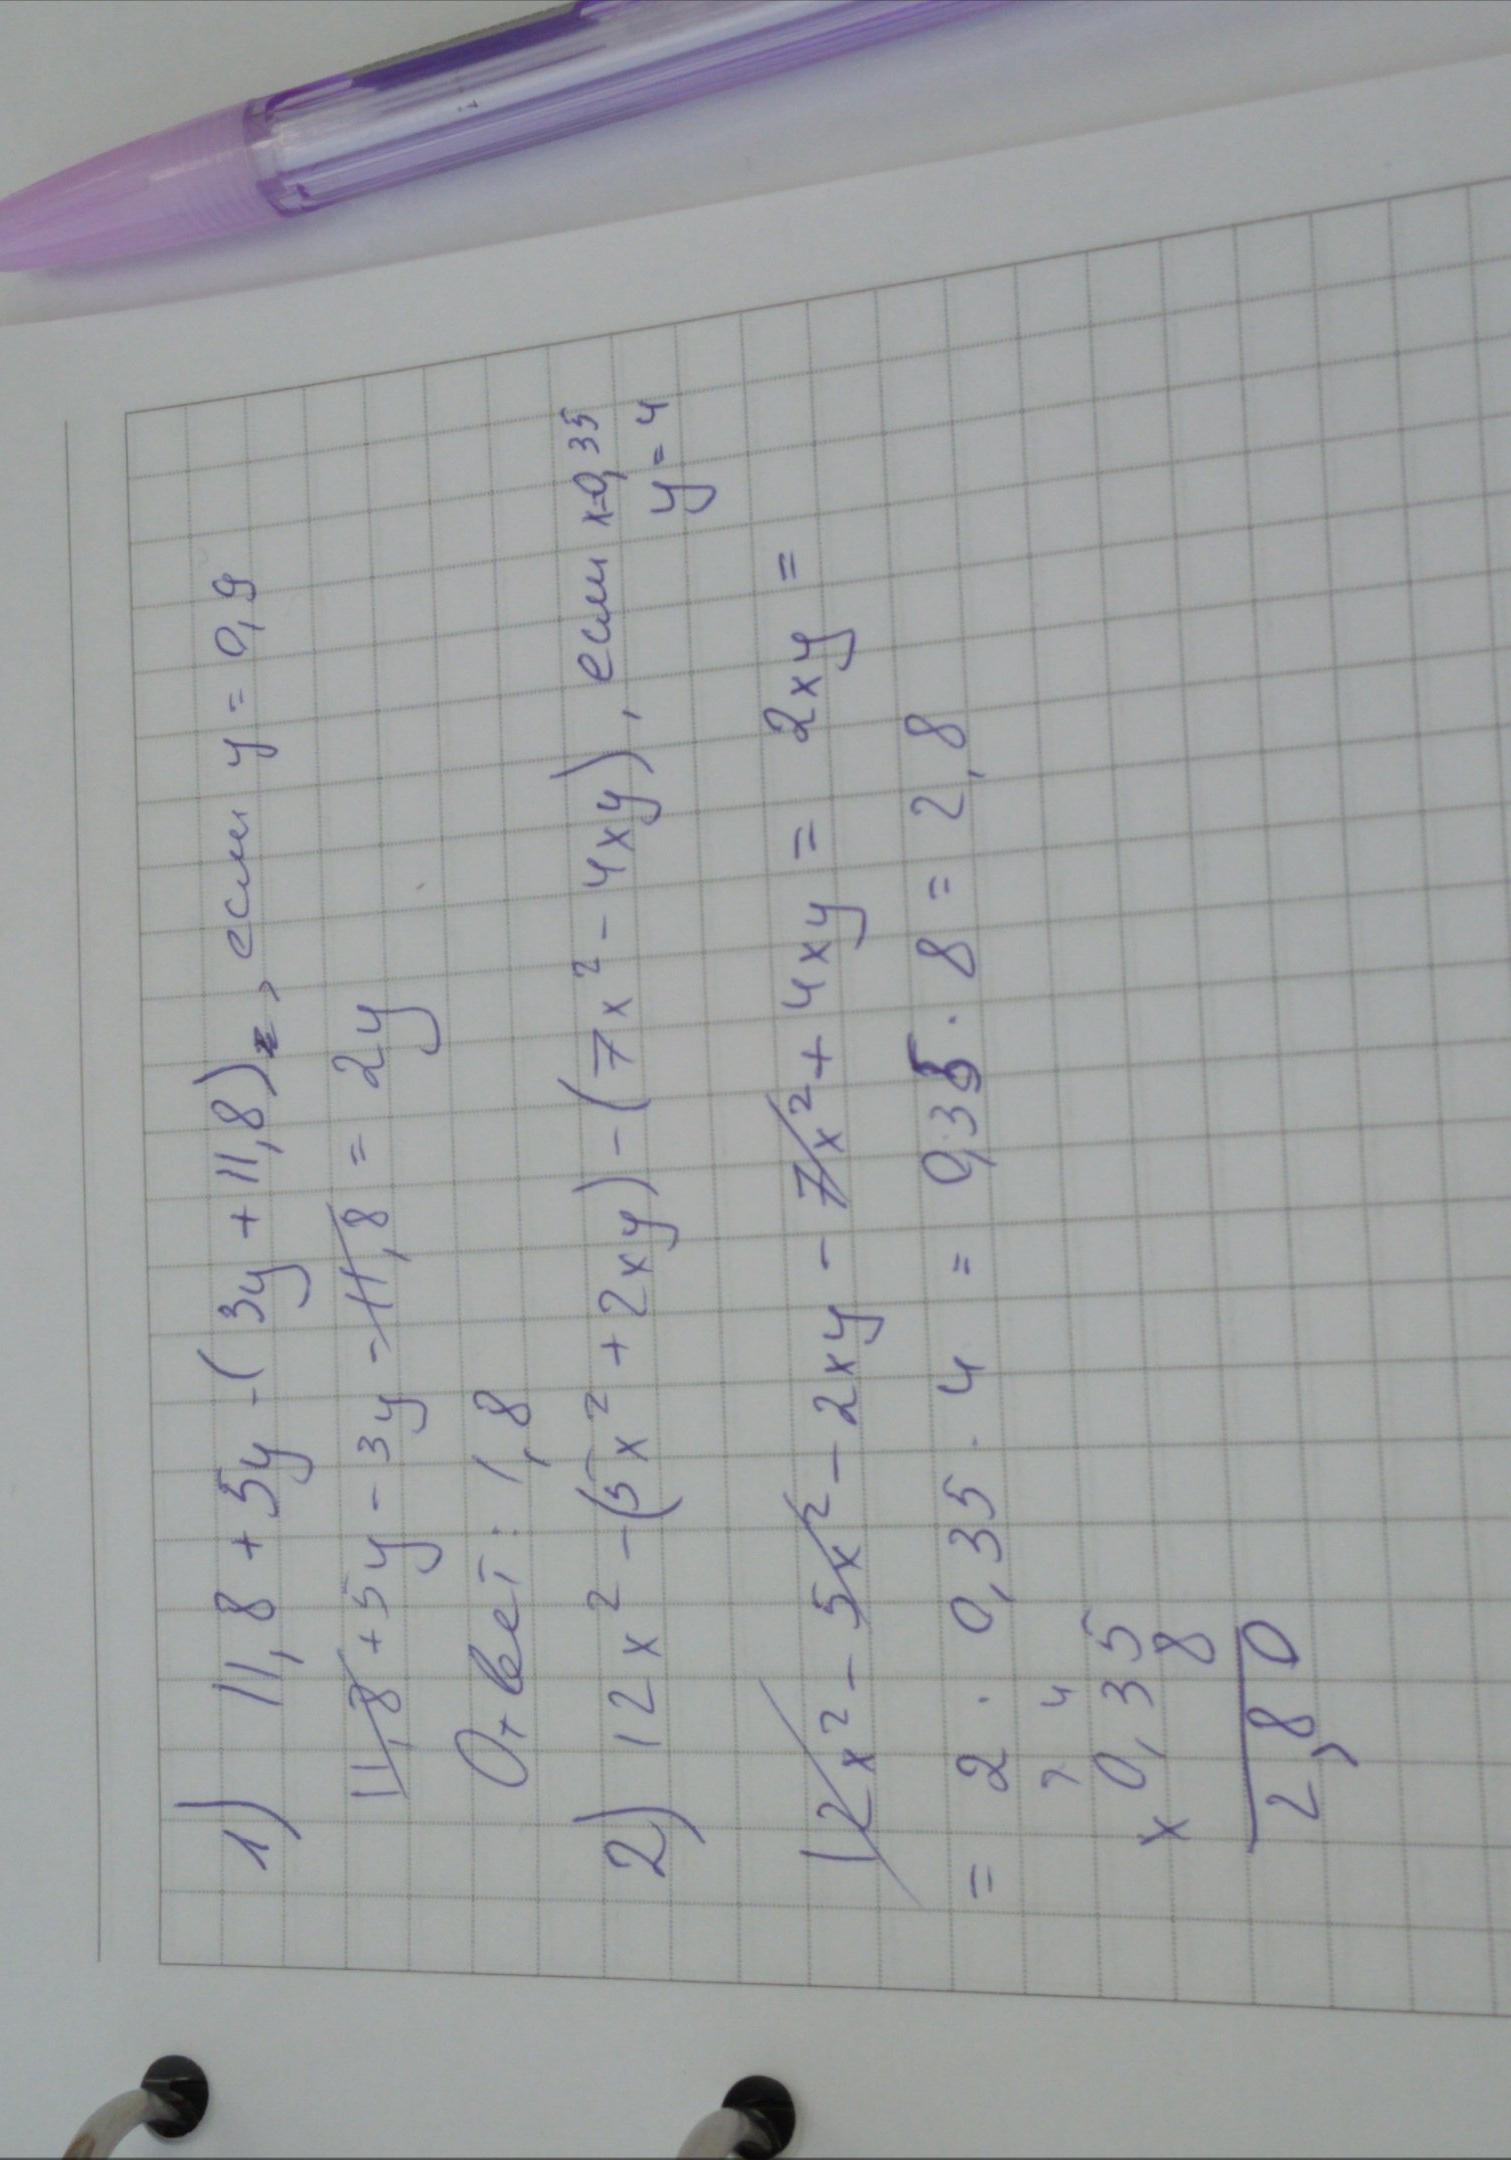 1) 11,8 + 5y - (3y + 11,8), если y = 0,9
11,8 + 5y - 3y - 11,8 = 2y
Ответ: 1,8
2) 12x² - (5x² + 2xy) - (7x² - 4xy), если x=0,35
y = 4
12x² - 5x² - 2xy - 7x² + 4xy = 2xy =
= 2 · 0,35 · 4 = 0,35 · 8 = 2,8
2 4
x 0,35
8
2,80